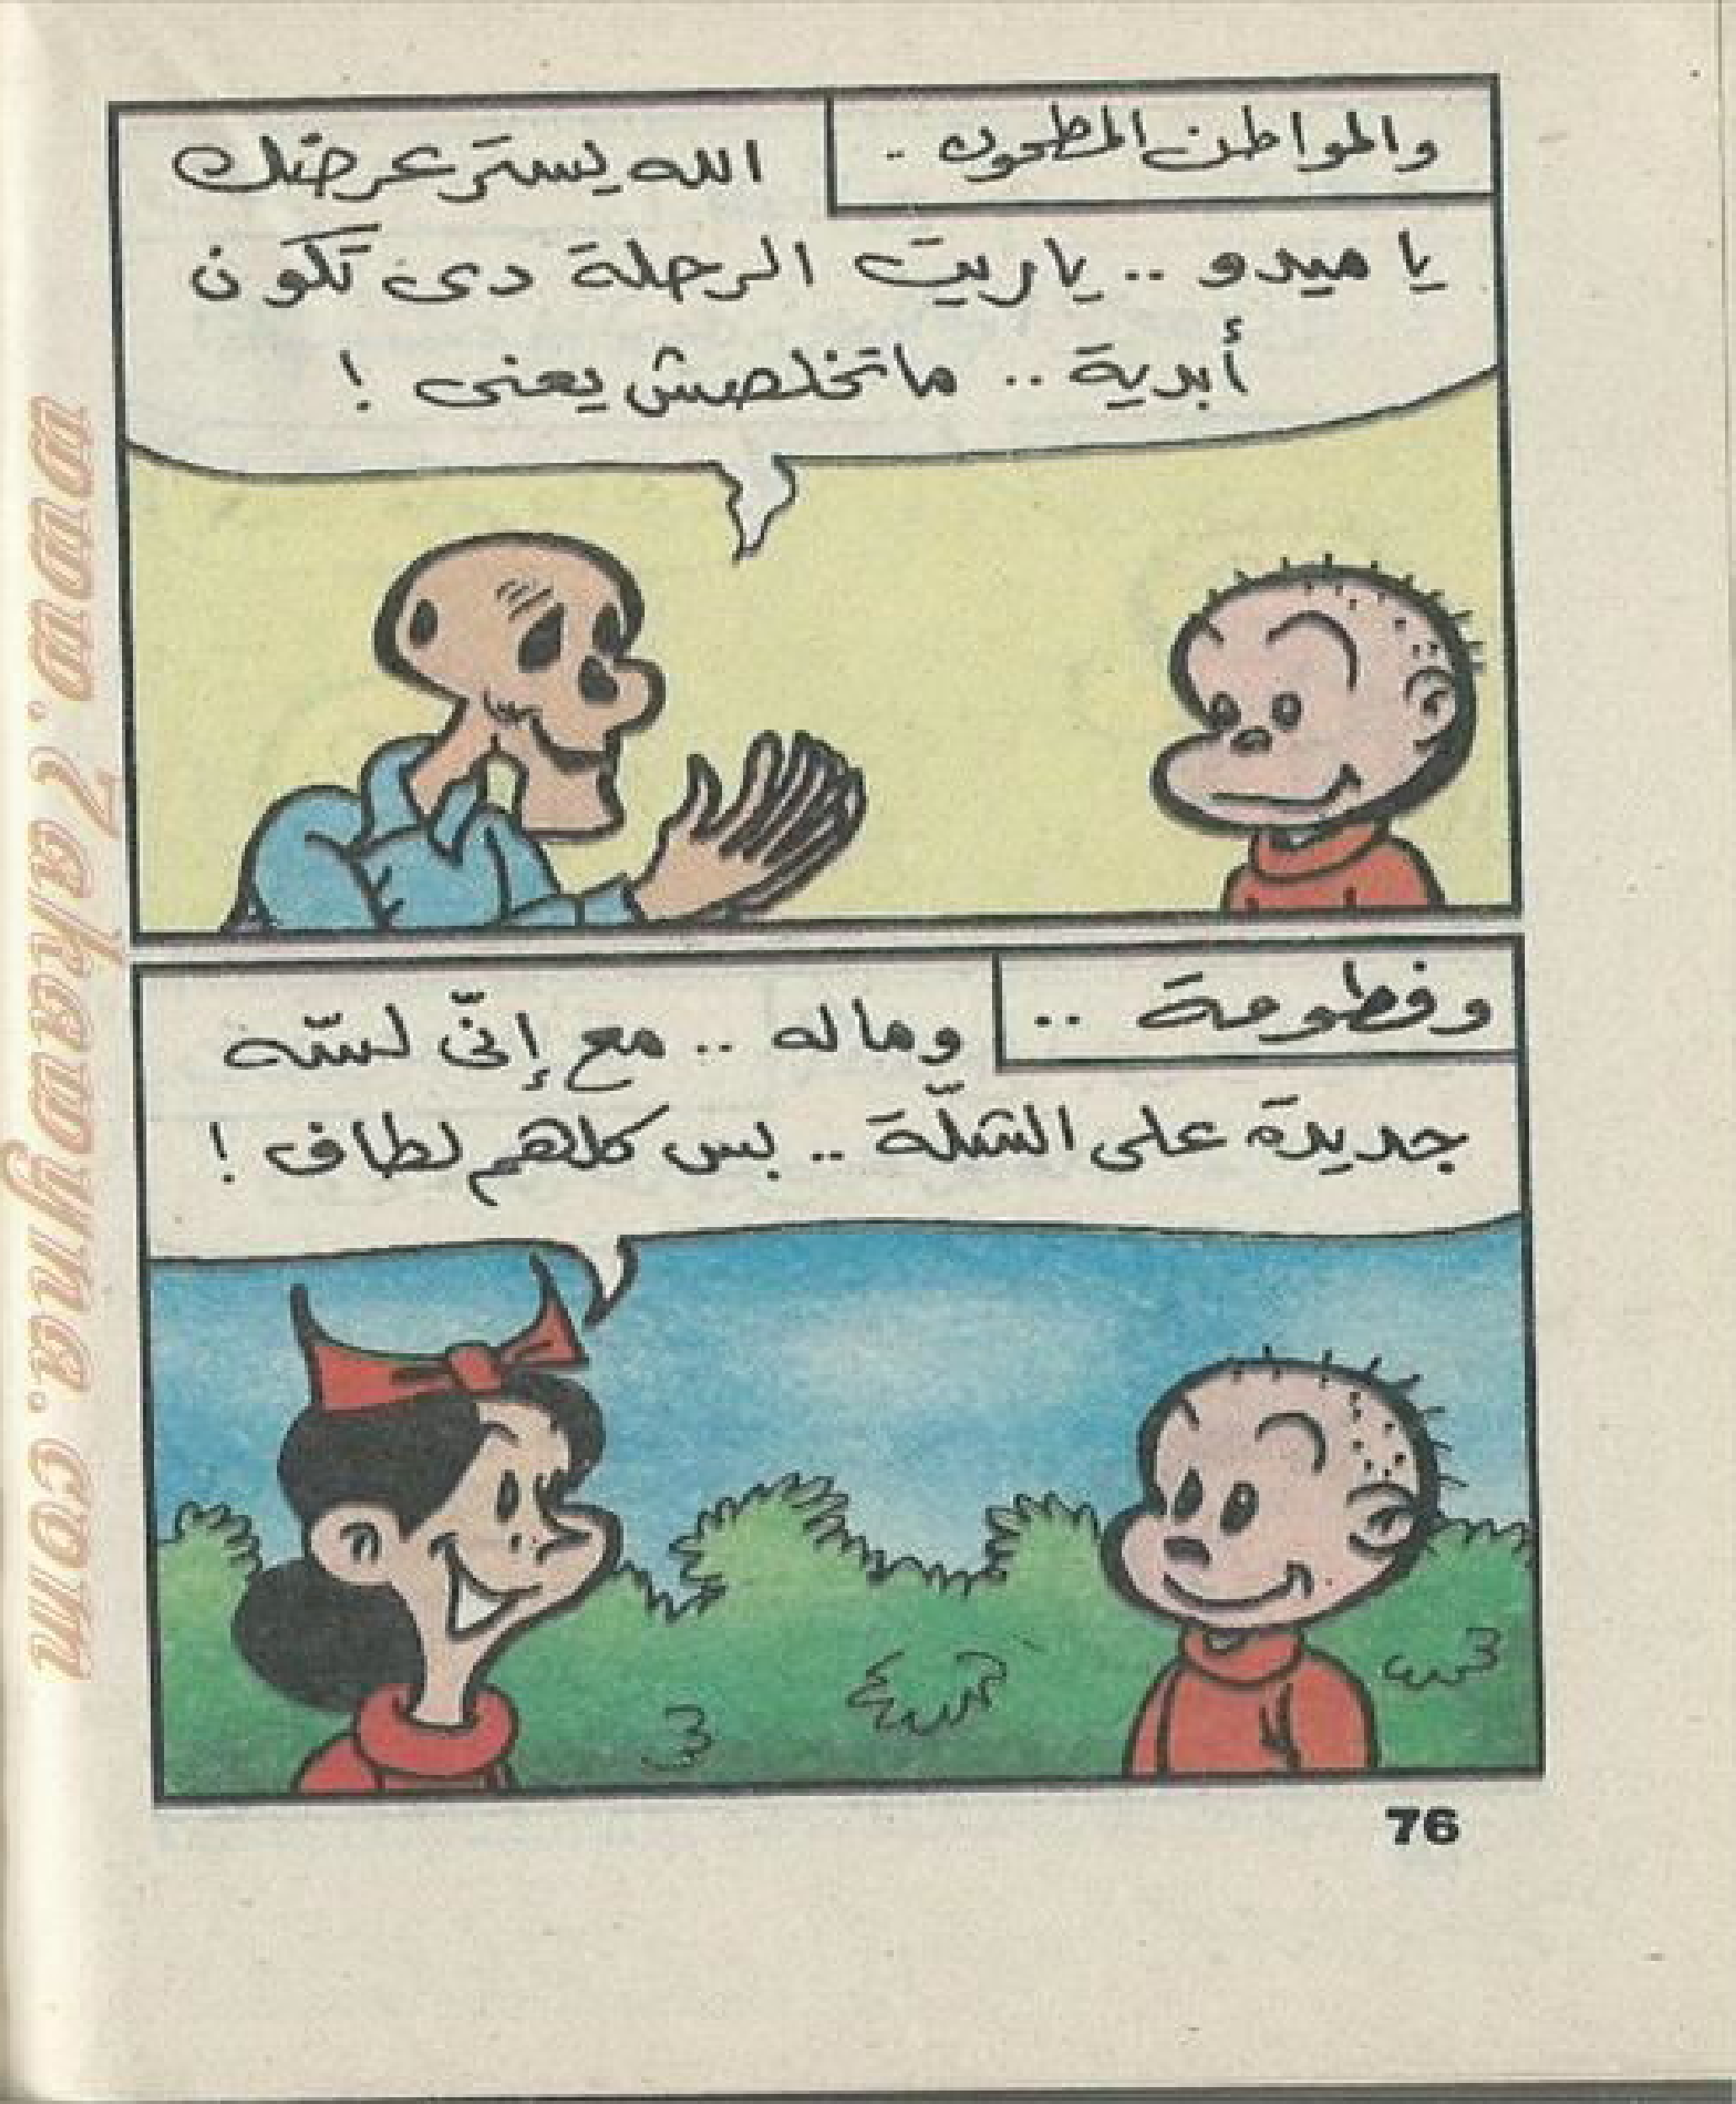 والمواطن المطحون ..
الله يستر عرضك
يا ميدو .. ياريت الرحلة دى تكون
أبدية .. ماتخلصش يعنى !
وفطومة ..
وماله .. مع إنّى لسّه
جديدة على الشلّة .. بس كلهم لطاف !
76
www.7elwayhna.com